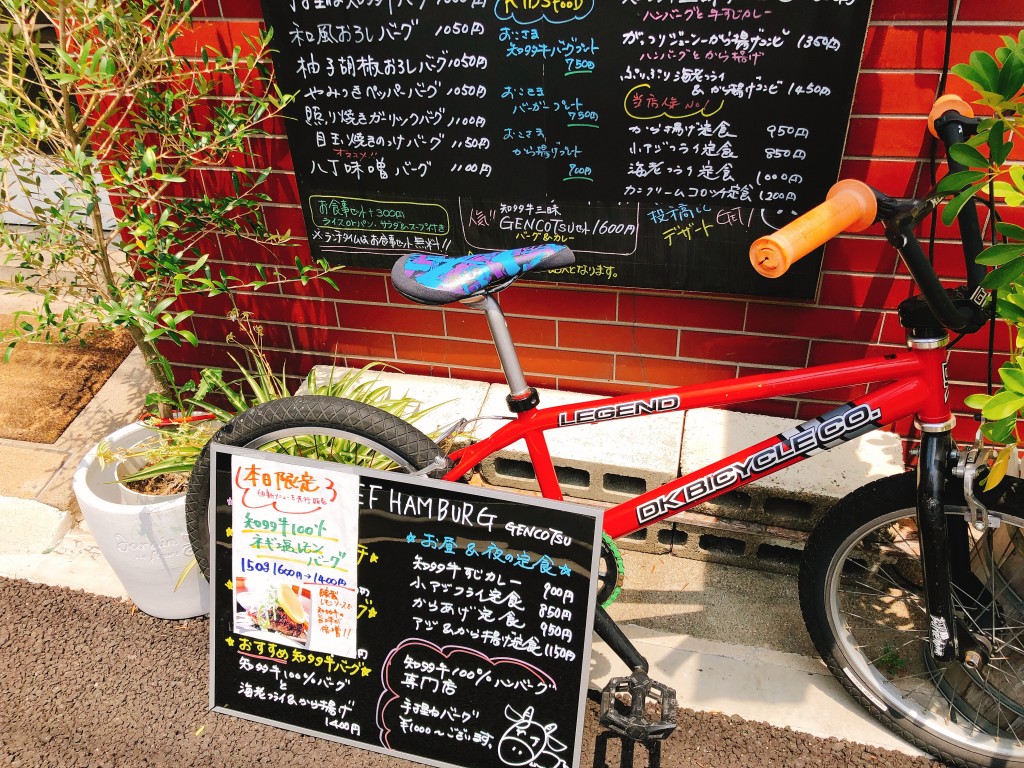 和風おろしバーグ 1050円
柚子胡椒おろしバーグ 1050円
やみつきペッパーバーグ 1050円
照り焼きガーリックバーグ 1100円
目玉焼きのっけバーグ 1150円
オススメ!!
八丁味噌バーグ 1100円
お食事セット+300円
ライスorパン、サラダ&スープ付き
※ランチタイムはお食事セット無料!!
KIDS FOOD
おこさま
知多牛バーグプレート
750円
おこさま
バーガープレート
750円
おこさま
から揚げプレート
700円
ハンバーグと牛すじカレー
がっつりジューシーから揚げコンビ 1350円
ハンバーグとから揚げ
ぷりぷり海老フライ
&から揚げコンビ 1450円
当店人気No.1
から揚げ定食 950円
小アジフライ定食 850円
海老フライ定食 1000円
カニクリームコロッケ定食 1200円
人気!!
知多牛三昧
GENCOTSUセット 1600円
バーグ&カレー
デザート
となります。
LEGEND
DK BICYCLE CO.
本日限定
知多牛100%
レモン
バーグ
1503 1600円→1400円
EF HAMBURG GENCOTSU
★お昼&夜の定食★
知多牛すじカレー 900円
小アジフライ定食 850円
からあげ定食 950円
アジ&から揚げ定食 1150円
★おすすめ知多牛バーグ★
知多牛100%バーグ
と
海老フライ&から揚げ
1400円
知多牛100%ハンバーグ
専門店
手ごねバーグ
¥1000〜ございます。